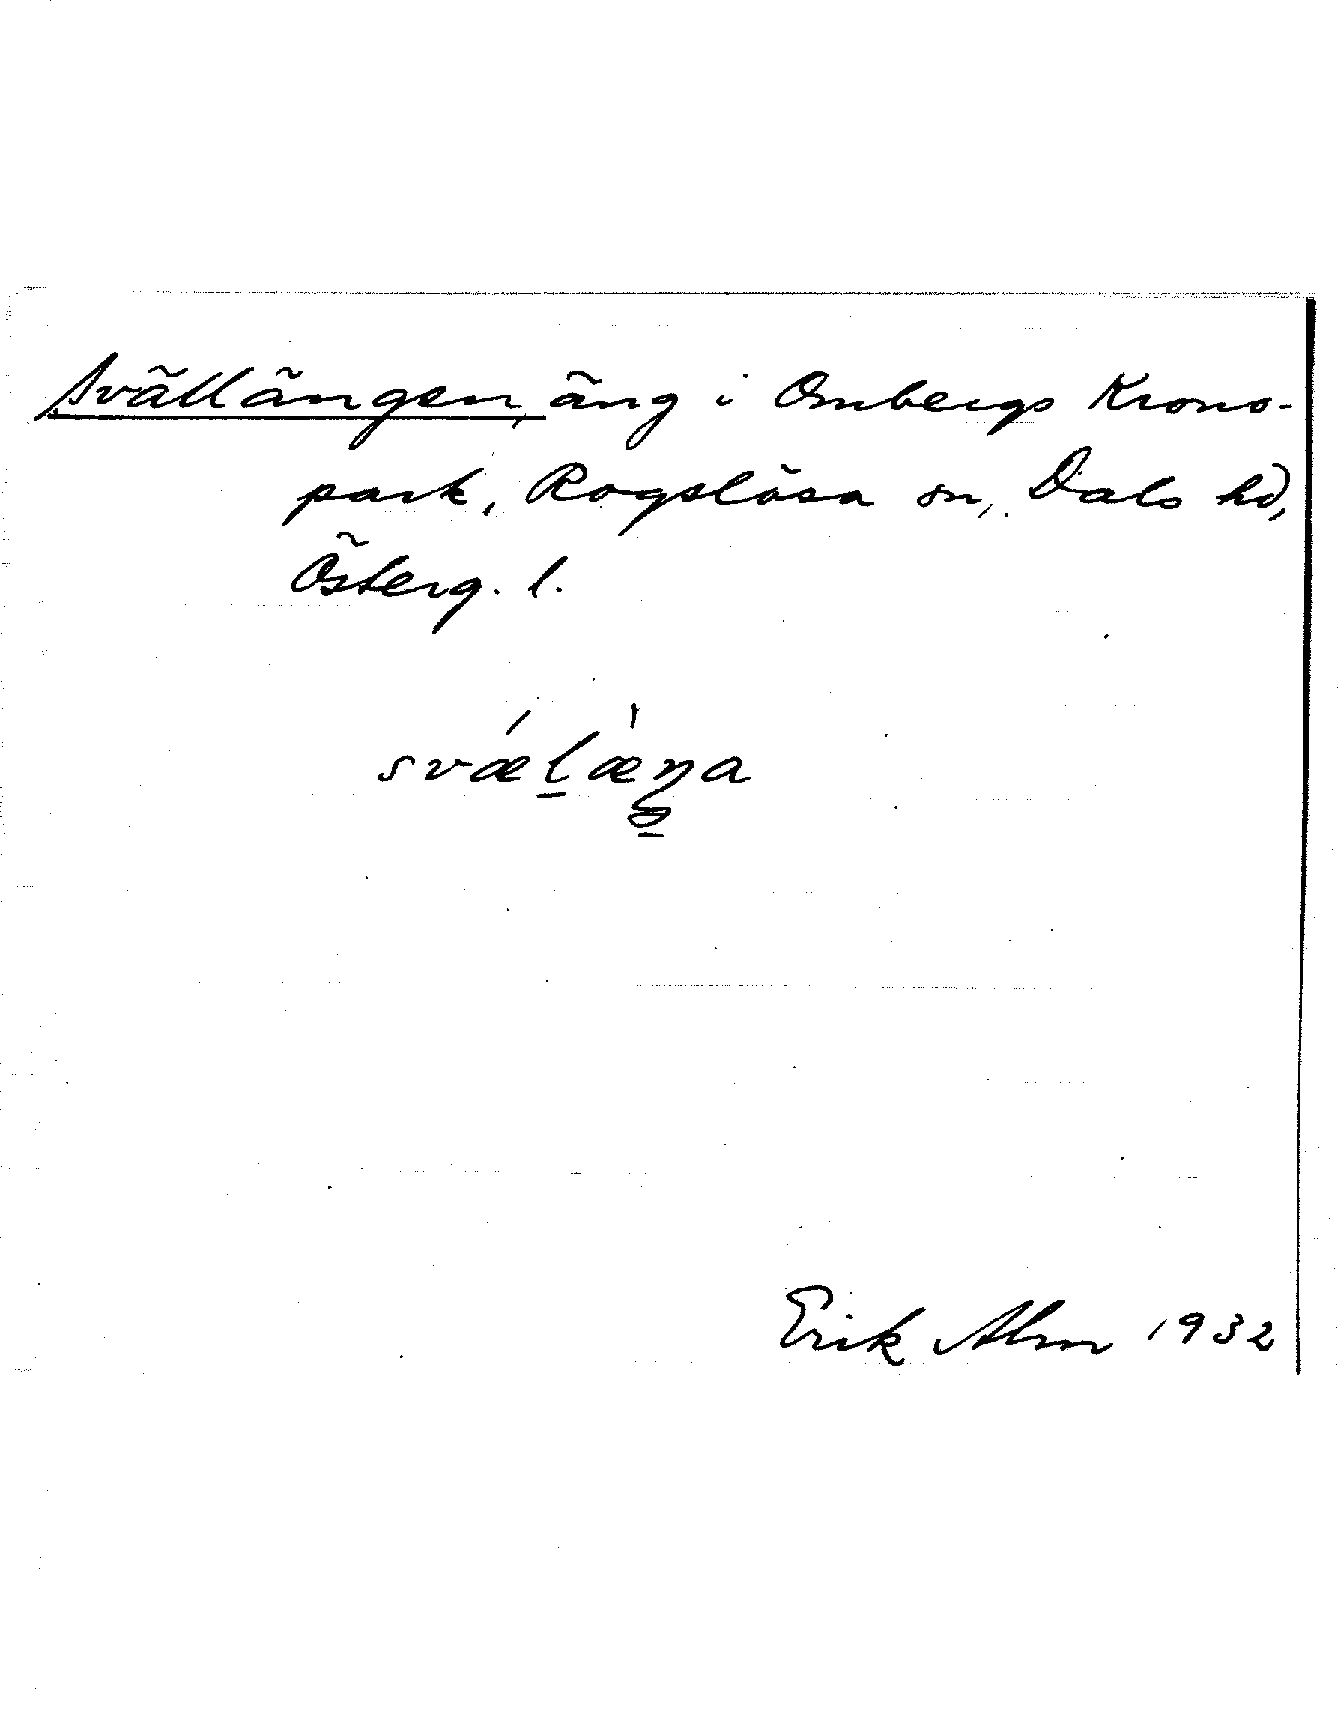 Svällängen, äng i Ombergs Krono-
park, Rogslösa sn, Dals hd,
Österg. l.
svǽlæ̀ŋa
Erik Alm 1932